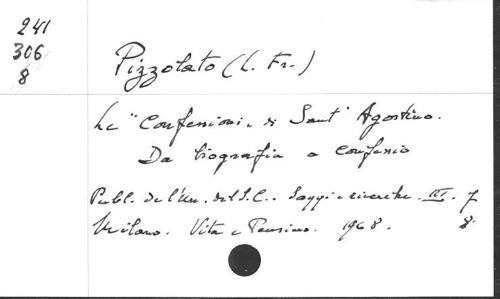 241
306
8
Pizzolato (L. Fr.)
Le "Confessioni" di Sant' Agostino.
Da biografia a confessio
Publ. de l'Un. del S.C.. Saggi e ricerche. III. 7
Milano. Vita e Pensiero. 1968. 8.